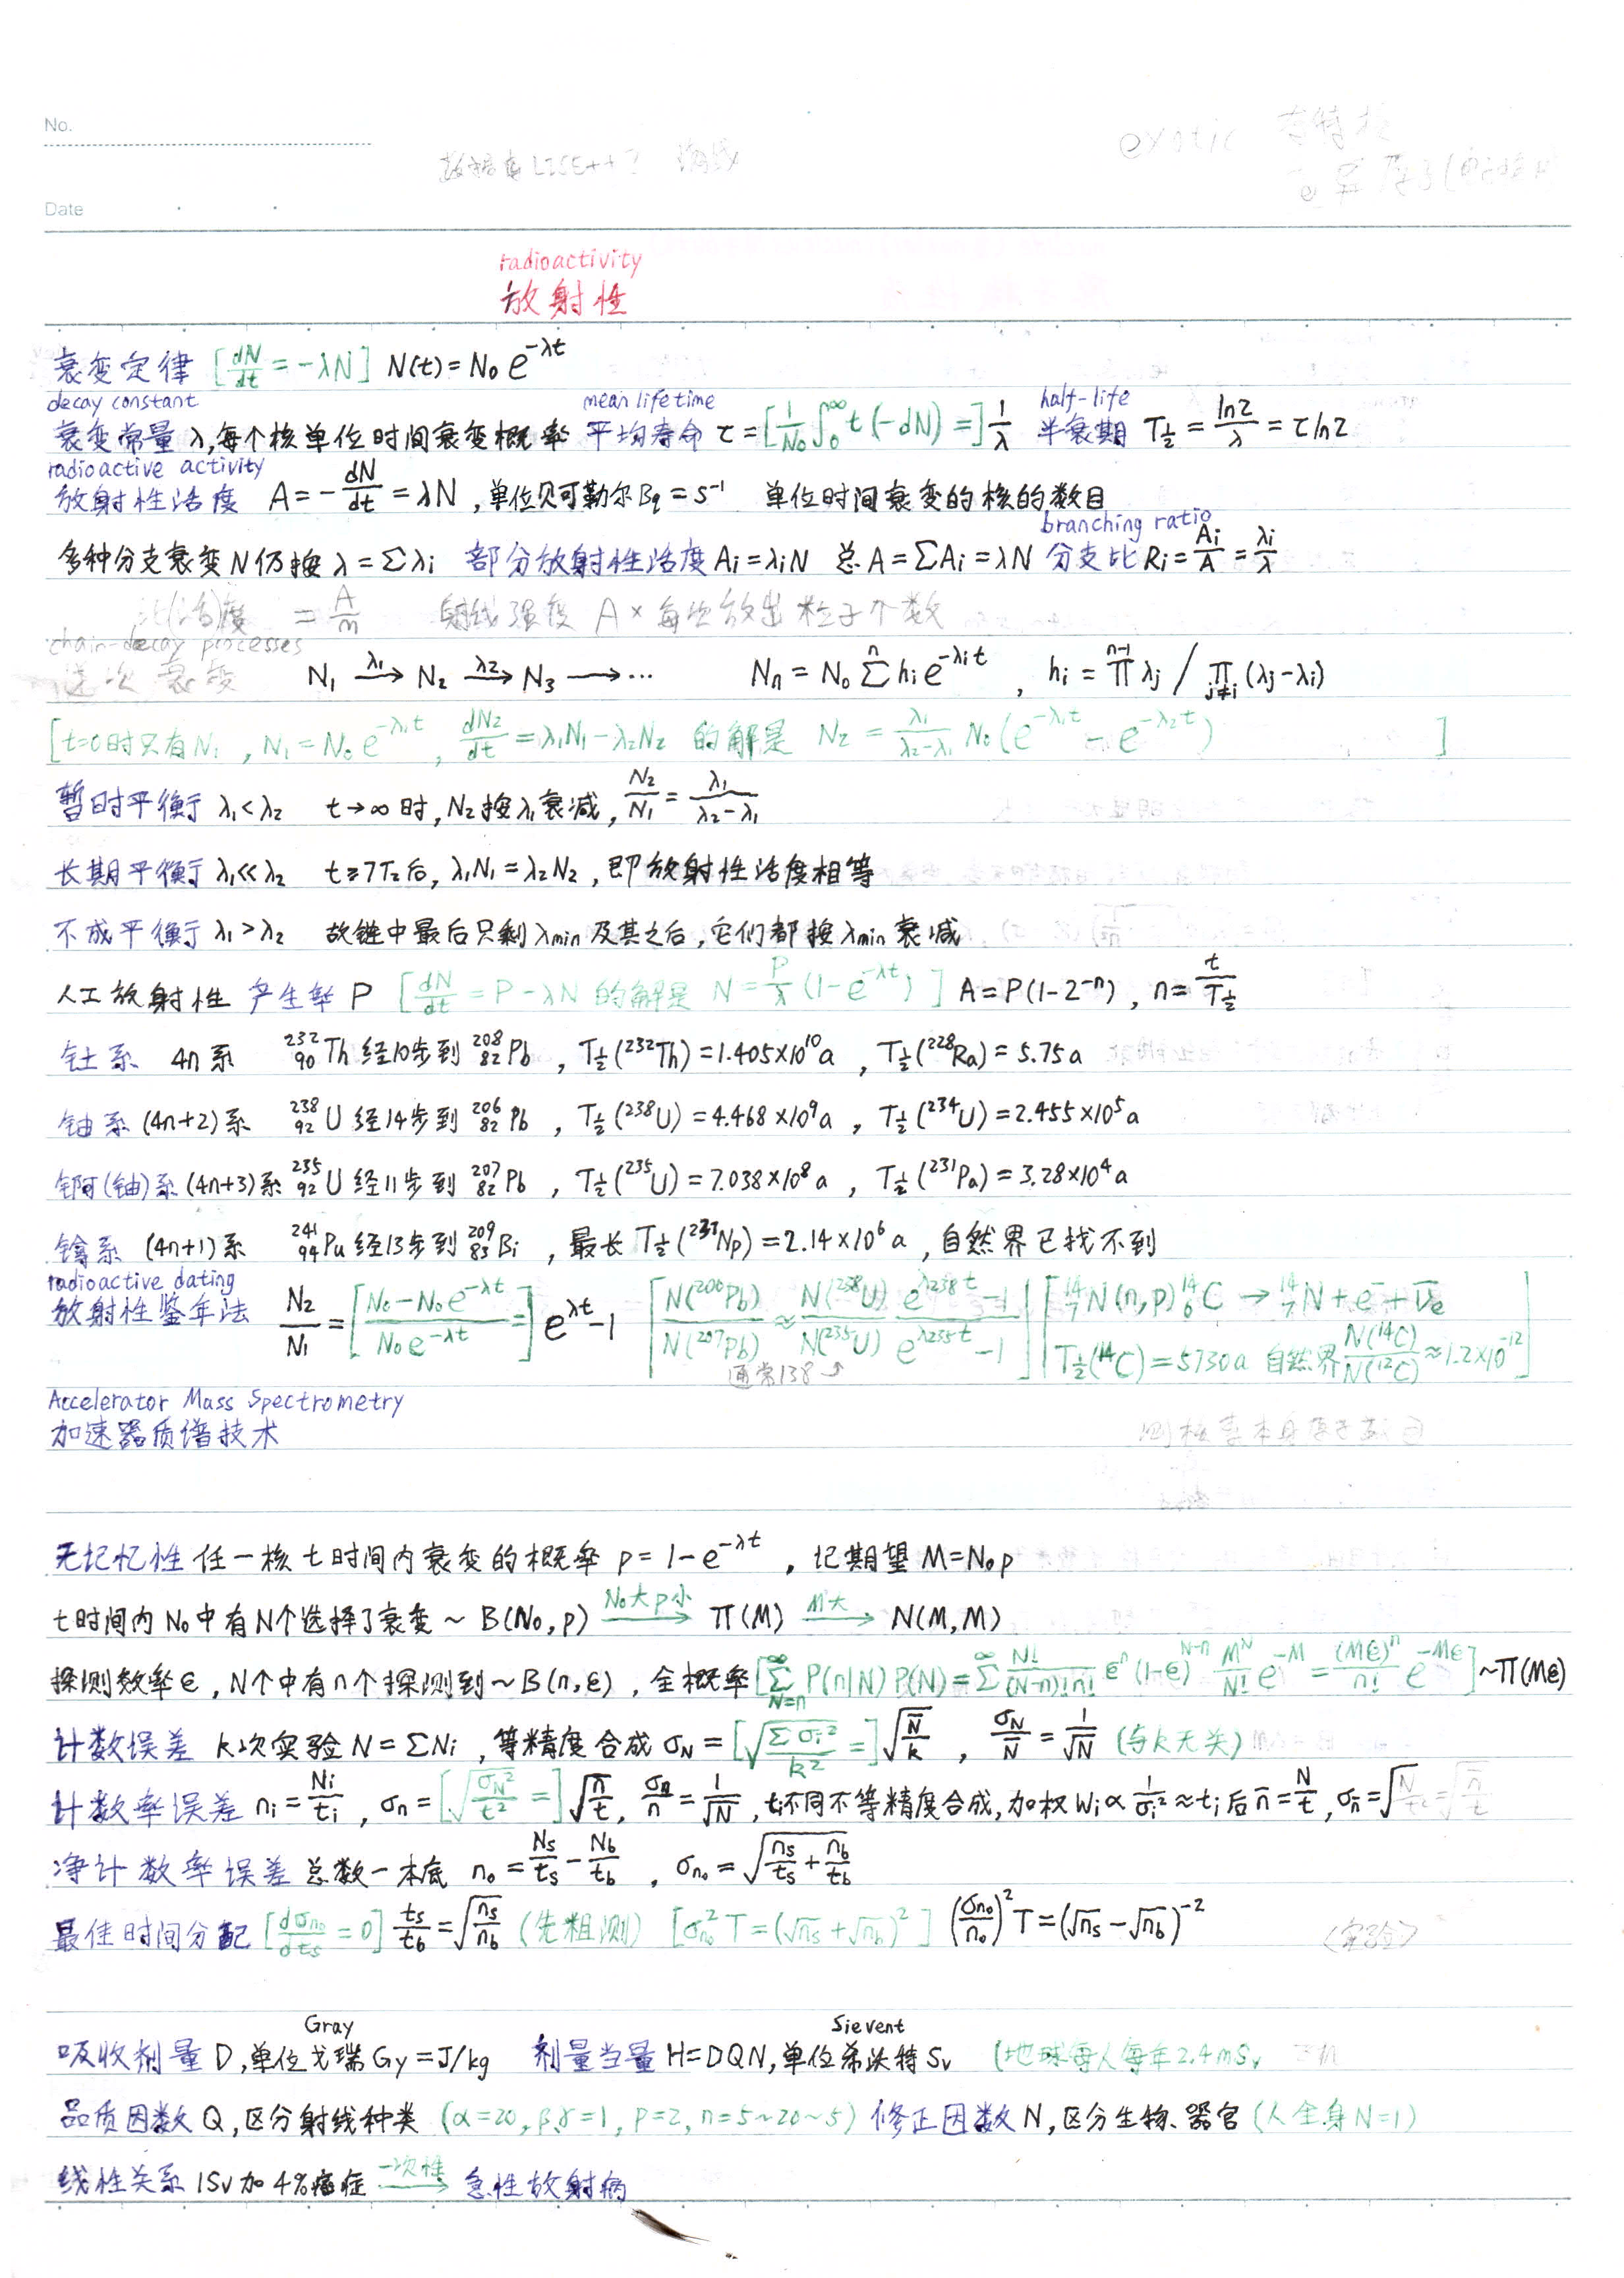 No.
exotic 奇特核
Date
radioactivity
放射性
衰变定律 [dN/dt = -λN] N(t) = N₀ e^{-λt}
decay constant mean lifetime half-life
衰变常量 λ,每个核单位时间衰变概率 平均寿命 τ = [1/N₀ ∫₀^∞ t (-dN) =] 1/λ 半衰期 T_{1/2} = ln2/λ = τ ln2
radioactive activity
放射性活度 A = -dN/dt = λN ,单位贝可勒尔 Bq = s⁻¹ 单位时间衰变的核的数目
branching ratio
多种分支衰变 N 仍按 λ = Σλi 部分放射性活度 Ai = λiN 总 A = ΣAi = λN 分支比 Ri = Ai/A = λi/λ
比(活)度 = A/m 射线强度 A × 每次放出粒子个数
chain-decay processes
递次衰变 N₁ →^{λ₁} N₂ →^{λ₂} N₃ → ⋯ Nn = N₀ Σ^n hi e^{-λit} , hi = Π^{n-1} λj / Π_{j≠i} (λj - λi)
[t=0时只有N₁ , N₁ = N₀ e^{-λ₁t} , dN₂/dt = λ₁N₁ - λ₂N₂ 的解是 N₂ = λ₁/(λ₂-λ₁) N₀ (e^{-λ₁t} - e^{-λ₂t}) ]
暂时平衡 λ₁<λ₂ t→∞ 时, N₂ 按 λ₁ 衰减, N₂/N₁ = λ₁/(λ₂-λ₁)
长期平衡 λ₁≪λ₂ t≥7T₂后, λ₁N₁ = λ₂N₂ , 即放射性活度相等
不成平衡 λ₁>λ₂ 故链中最后只剩 λmin 及其之后, 它们都按 λmin 衰减
人工放射性 产生率 P [dN/dt = P - λN 的解是 N = P/λ (1-e^{-λt}) ] A = P(1-2^{-n}) , n = t/T_{1/2}
钍系 4n系 ²³²₉₀Th 经10步到 ²⁰⁸₈₂Pb , T_{1/2}(²³²Th) = 1.405×10¹⁰a , T_{1/2}(²²⁸Ra) = 5.75a
铀系 (4n+2)系 ²³⁸₉₂U 经14步到 ²⁰⁶₈₂Pb , T_{1/2}(²³⁸U) = 4.468×10⁹a , T_{1/2}(²³⁴U) = 2.455×10⁵a
锕(铀)系 (4n+3)系 ²³⁵₉₂U 经11步到 ²⁰⁷₈₂Pb , T_{1/2}(²³⁵U) = 7.038×10⁸a , T_{1/2}(²³¹Pa) = 3.28×10⁴a
镎系 (4n+1)系 ²⁴¹₉₄Pu 经13步到 ²⁰⁹₈₃Bi , 最长 T_{1/2}(²³⁷Np) = 2.14×10⁶a , 自然界已找不到
radioactive dating
放射性鉴年法 N₂/N₁ = [(N₀-N₀e^{-λt})/(N₀e^{-λt}) =] e^{λt}-1 [N(²⁰⁶Pb)/N(²⁰⁷Pb) ≈ N(²³⁸U)/N(²³⁵U) (e^{λ238t}-1)/(e^{λ235t}-1)] [¹⁴₇N(n,p)¹⁴₆C → ¹⁴₇N + e⁻ + ν̄e
T_{1/2}(¹⁴C) = 5730a 自然界 N(¹⁴C)/N(¹²C) ≈ 1.2×10⁻¹²]
通常138
Accelerator Mass Spectrometry
加速器质谱技术
无记忆性 任一核 t 时间内衰变的概率 p = 1-e^{-λt} , 记期望 M = N₀p
t时间内 N₀ 中有 N个选择了衰变 ~ B(N₀,p) →^{N₀大p小} π(M) →^{M大} N(M,M)
探测效率 ϵ , N个中有n个探测到 ~ B(n,ϵ) , 全概率 [Σ_{N=n}^∞ P(n|N) P(N) = Σ^∞ N!/((N-n)!n!) ϵ^n (1-ϵ)^{N-n} M^N/N! e^{-M} = (Mϵ)^n/n! e^{-Mϵ}] ~ π(Mϵ)
计数误差 k次实验 N = ΣNi , 等精度合成 σ_N = [√(Σσi²/k²) =] √(N̄/k) , σ_N/N = 1/√N (与k无关)
计数率误差 ni = Ni/ti , σn = [√(σ_N²/t²) =] √(n/t) , σn/n = 1/√N , ti不同不等精度合成, 加权 Wi ∝ 1/σi² ≈ ti 后 n̄ = N/t , σn̄ = √(N/t²) = √(n̄/t)
净计数率误差 总数-本底 n₀ = Ns/ts - Nb/tb , σn₀ = √(ns/ts + nb/tb)
最佳时间分配 [dσn₀/dts = 0] ts/tb = √(ns/nb) (先粗测) [σ²n₀ T = (√ns + √nb)²] (σn₀/n₀)² T = (√ns - √nb)⁻² (实验)
Gray Sievent
吸收剂量 D, 单位戈瑞 Gy = J/kg 剂量当量 H = DQN, 单位希沃特 Sv (地球每人每年 2.4mSv
品质因数 Q, 区分射线种类 (α=20, β,γ=1, P=2, n=5~20~5) 修正因数 N, 区分生物、器官 (人全身 N=1)
线性关系 1Sv加 4%癌症 →^{一次性} 急性放射病